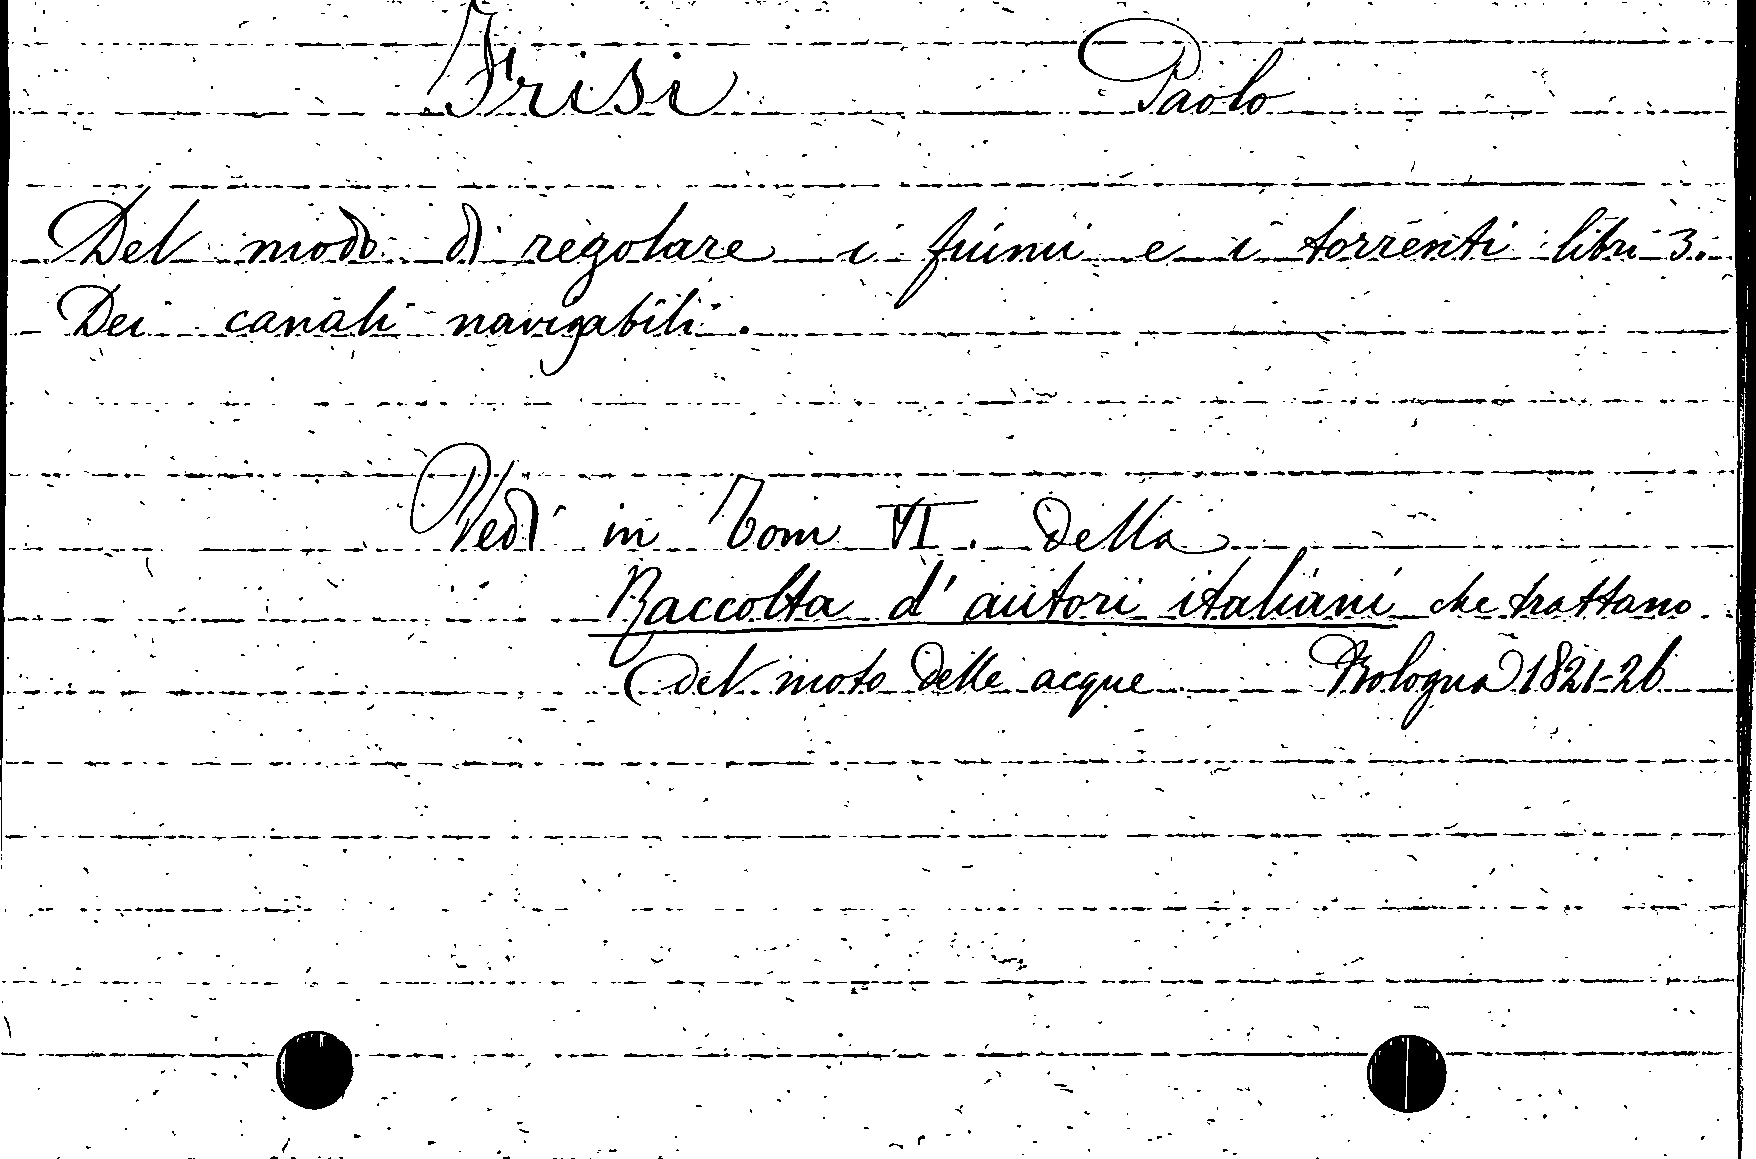 Frisi Paolo
Del modo di regolare i fiumi e i torrenti libri 3.
Dei canali navigabili.
Vedi in Tom VI. della
Raccolta d'autori italiani che trattano
del moto delle acque Bologna 1821-26